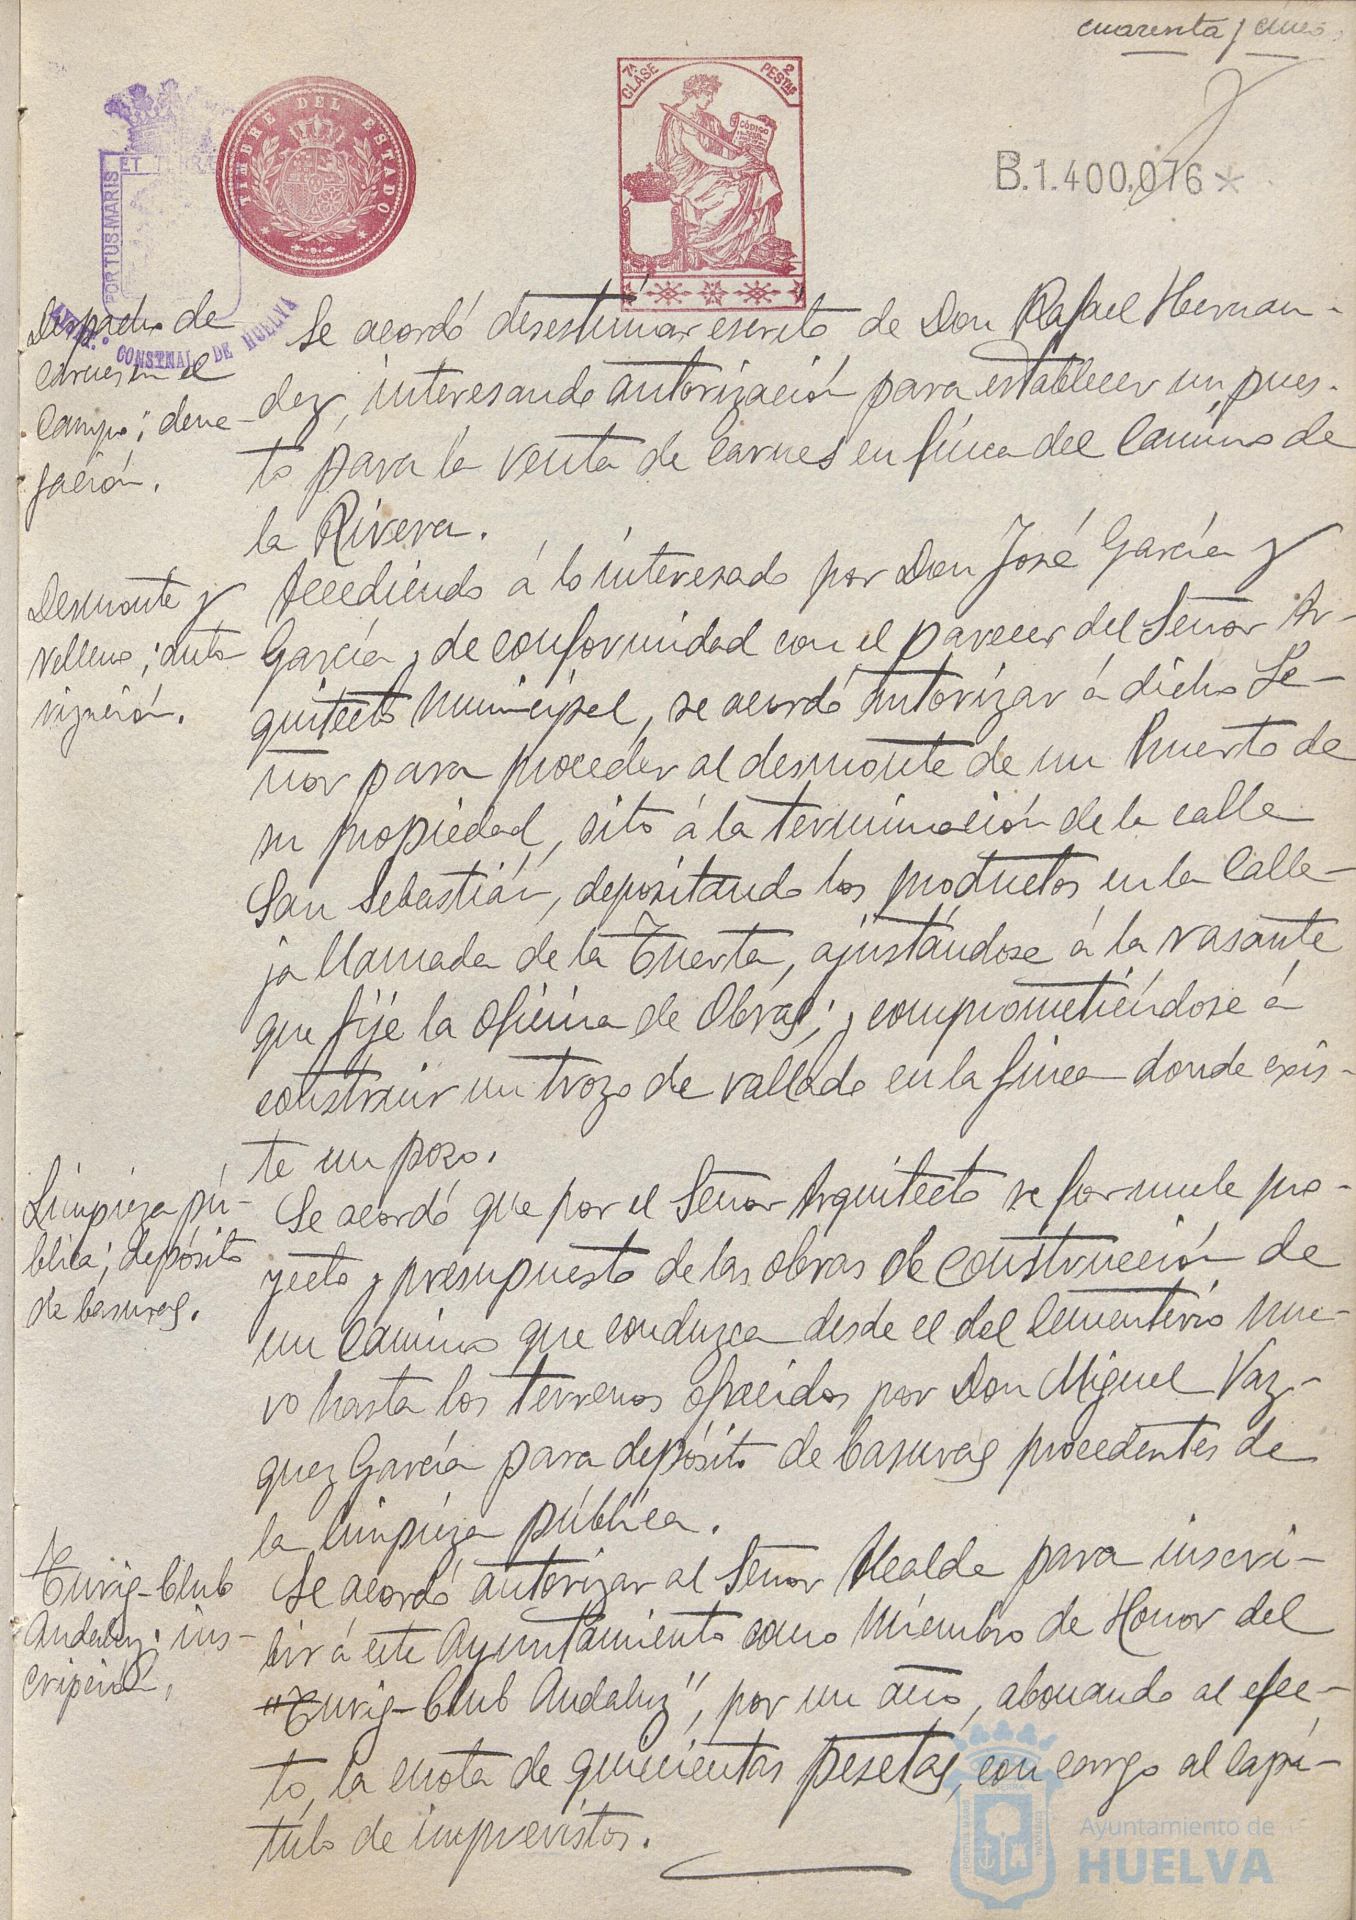 cuarenta y cinco
7ª CLASE
2 PESTAS
CÓDIGO
TIMBRE DEL ESTADO
PORTUS MARIS
ET TERRÆ
CONSTNAL DE HUELVA
B.1.400,076*
Despacho de
carnes en el
Campo; dene-
gación.
Se acordó desestimar escrito de Don Rafael Hernan-
dez, interesando autorización para establecer un pues-
to para la venta de carnes en finca del Camino de
la Rivera.
Desmonte y
relleno; auto-
rización.
Accediendo á lo interesado por Don José García y
García y de conformidad con el parecer del Señor Ar-
quitecto Municipal, se acordó autorizar á dicho Se-
ñor para proceder al desmonte de un Huerto de
su propiedad, sito á la terminación de la calle
San Sebastián, depositando los productos en la Calle-
ja llamada de la Tuerta, ajustándose á la rasante
que fije la Oficina de Obras; y comprometiéndose á
construir un trozo de vallado en la finca donde exis-
te un pozo.
Limpieza pú-
blica; depósito
de basuras.
Se acordó que por el Señor Arquitecto se formule pro-
yecto y presupuesto de las obras de construcción de
un Camino que conduzca desde el del Cementerio Nue-
vo hasta los terrenos ofrecidos por Don Miguel Vaz-
quez García para depósito de basuras procedentes de
la limpieza pública.
Turig-Club
Andaluz; ins-
cripción.
Se acordó autorizar al Señor Alcalde para inscri-
bir á este Ayuntamiento como Miembro de Honor del
"Turig-Club Andaluz", por un año, abonando al efec-
to, la cuota de quinientas pesetas, con cargo al capí-
tulo de imprevistos.
Ayuntamiento de
HUELVA